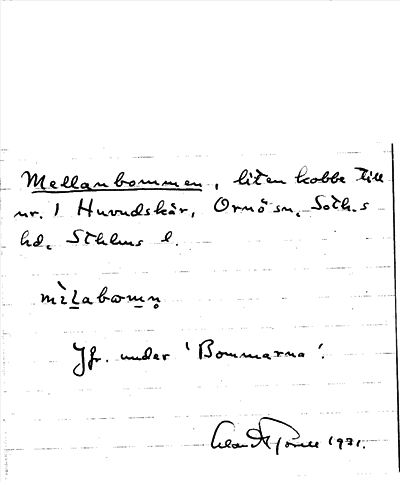 Mellanbommen, liten kobbe till
nr. 1 Huvudskär, Ornö sn, Soth.s
hd, Sthlms l.
Jfr. under 'Bommarna'.
1931.